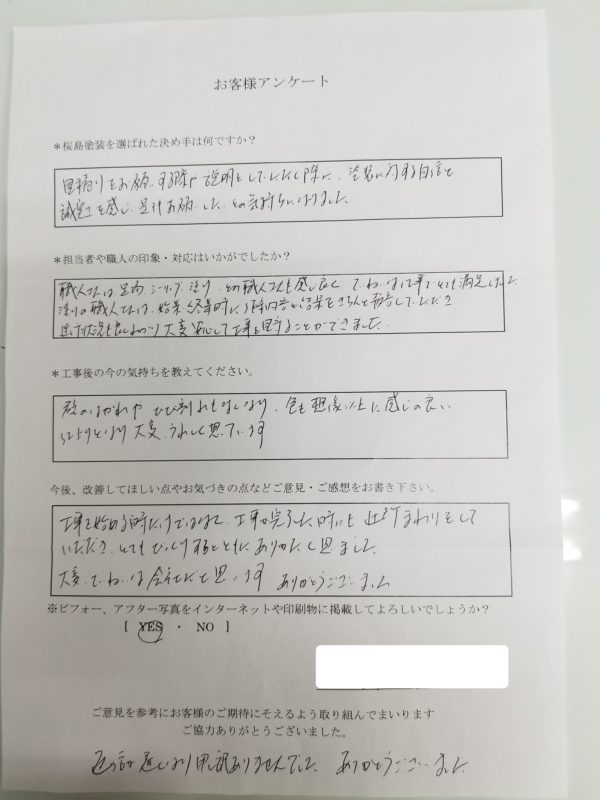 お客様アンケート
*桜島塗装を選ばれた決め手は何ですか?
見積りをお願いする際や説明をしていただく際に、塗装に対する自信と
誠実さを感じ、是非お願いしたいとの気持ちになりました。
*担当者や職人の印象・対応はいかがでしたか?
職人さんは、足場、シーリング、塗り、どの職人さんも感じ良く、ていねいな仕事でとても満足しました。
塗りの職人さんは、始業と終業時に、作業内容と結果をきちんと報告していただき
進行状況も良くわかり大変安心して工事を見守ることができました。
*工事後の今の気持ちを教えてください。
壁のはがれやひび割れもなくなり、色も想像以上に感じの良い
仕上りとなり大変うれしく思っています
今後、改善してほしい点やお気づきの点などご意見・ご感想をお書き下さい。
工事を始める時だけではなく、工事が完了した時にも近所まわりをして
いただき、とてもびっくりするとともにありがたく思いました。
大変ていねいな会社だと思います ありがとうございました
※ビフォー、アフター写真をインターネットや印刷物に掲載してよろしいでしょうか?
[ YES ・ NO ]
ご意見を参考にお客様のご期待にそえるよう取り組んでまいります
ご協力ありがとうございました。
返信が遅くなり申し訳ありませんでした ありがとうございました